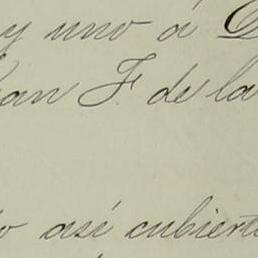 y uno á
F. de la
así cubiert